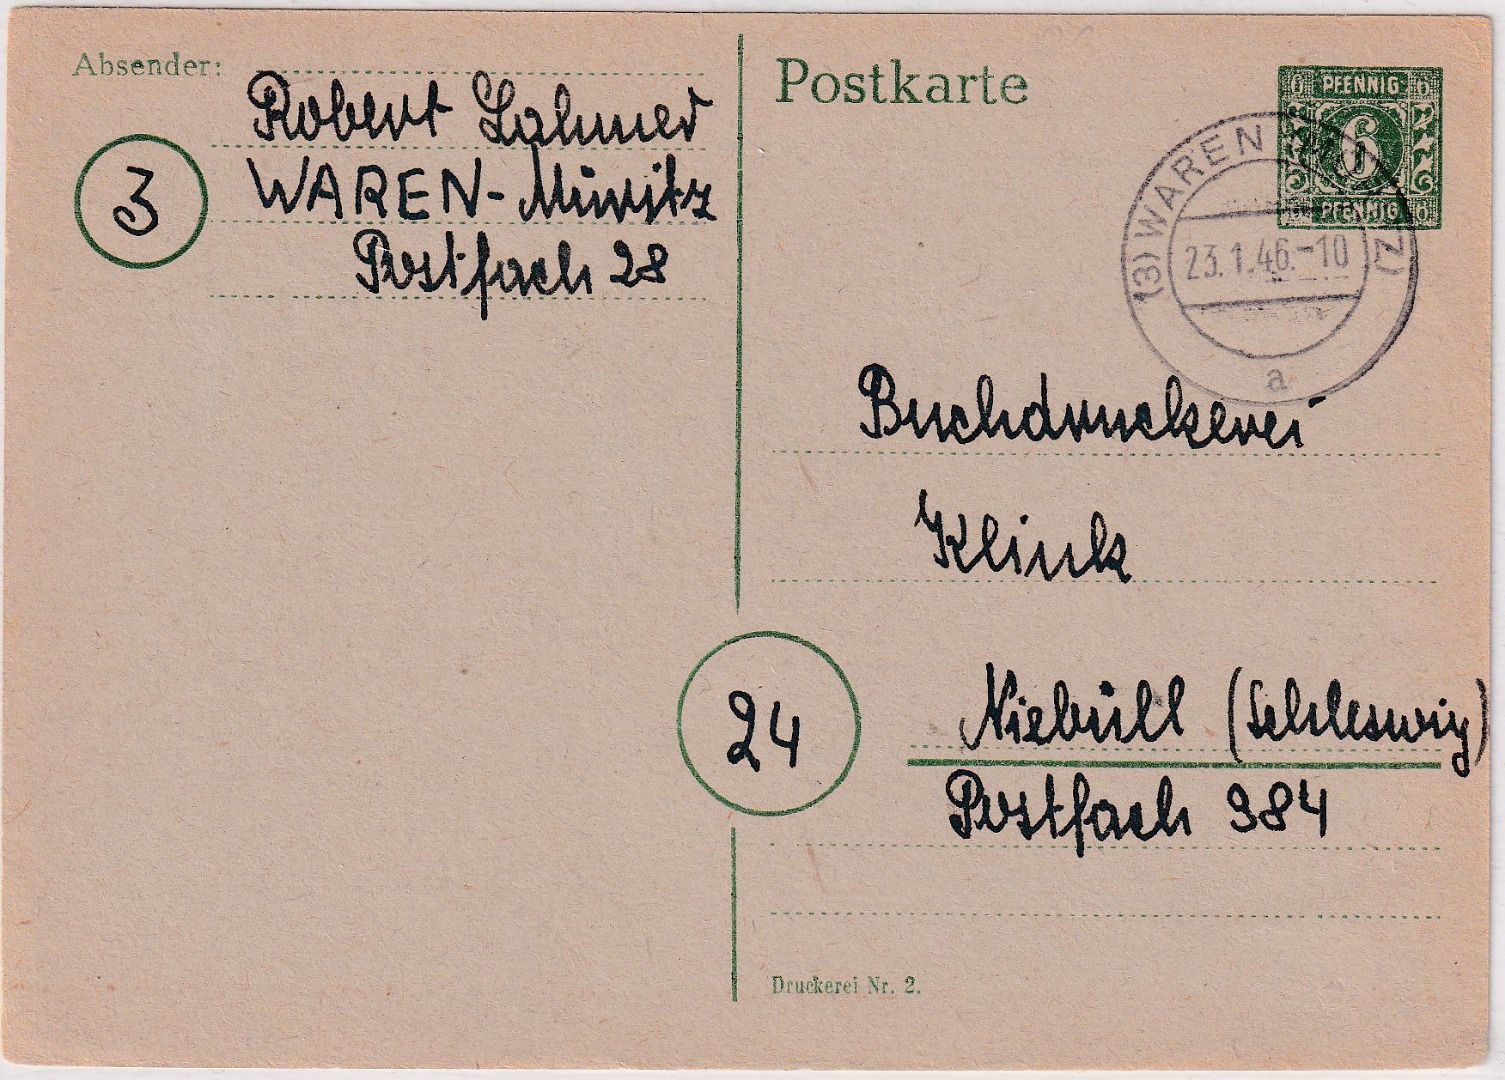 Absender:
Robert Lahmer
WAREN-Müritz
Postfach 28
3
Postkarte
PFENNIG
6
PFENNIG
(3) WAREN (M Z)
23.1.46.-10
a
Buchdruckerei
Klink
24
Niebüll (Schleswig)
Postfach 384
Druckerei Nr. 2.